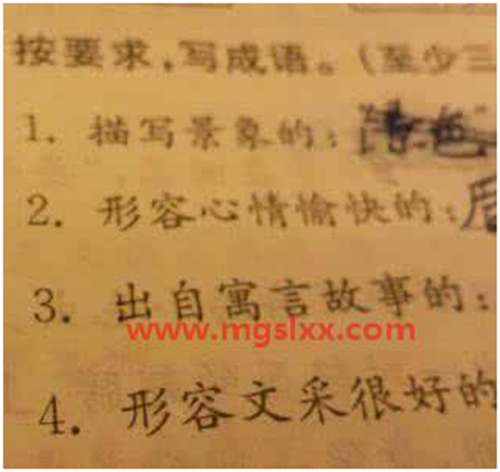 按要求,写成语。(至少三
1. 描写景象的:
2. 形容心情愉快的:
3. 出自寓言故事的:
www.mgslxx.com
4. 形容文采很好的